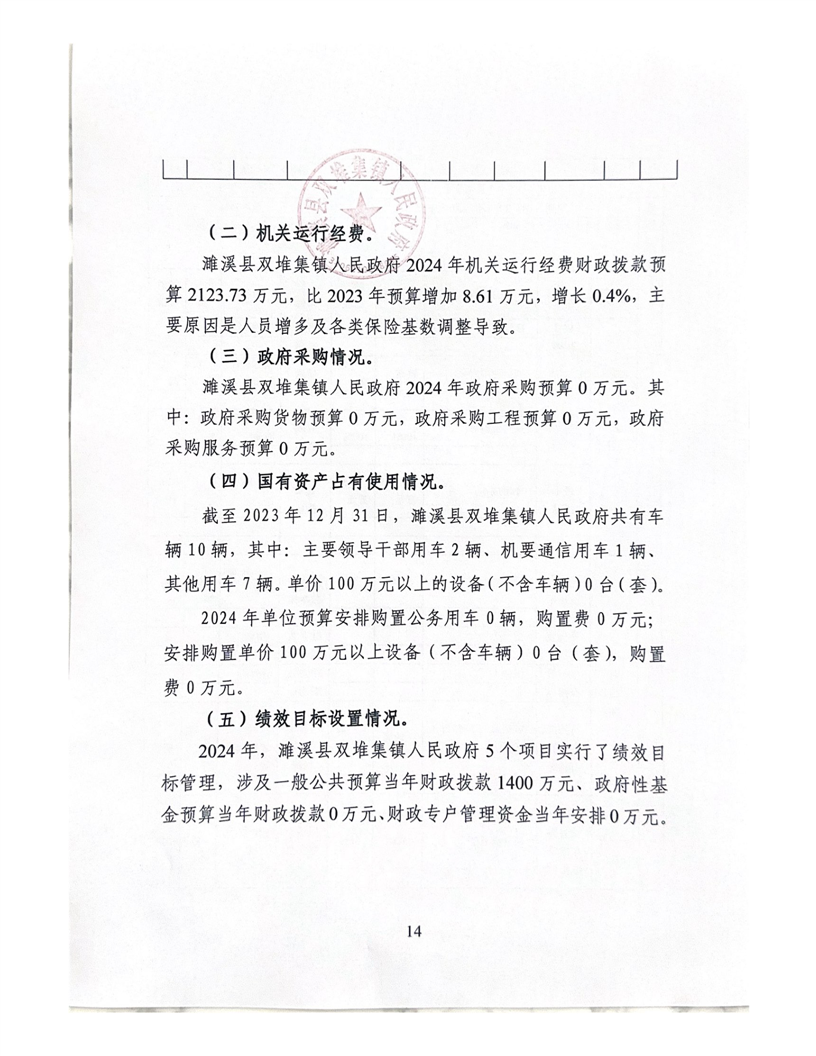 县双堆集镇人民政府
（二）机关运行经费。
濉溪县双堆集镇人民政府 2024 年机关运行经费财政拨款预
算 2123.73 万元，比 2023 年预算增加 8.61 万元，增长 0.4%，主
要原因是人员增多及各类保险基数调整导致。
（三）政府采购情况。
濉溪县双堆集镇人民政府 2024 年政府采购预算 0 万元。其
中：政府采购货物预算 0 万元，政府采购工程预算 0 万元，政府
采购服务预算 0 万元。
（四）国有资产占有使用情况。
截至 2023 年 12 月 31 日，濉溪县双堆集镇人民政府共有车
辆 10 辆，其中：主要领导干部用车 2 辆、机要通信用车 1 辆、
其他用车 7 辆。单价 100 万元以上的设备（不含车辆）0 台（套）。
2024 年单位预算安排购置公务用车 0 辆，购置费 0 万元；
安排购置单价 100 万元以上设备（不含车辆）0 台（套），购置
费 0 万元。
（五）绩效目标设置情况。
2024 年，濉溪县双堆集镇人民政府 5 个项目实行了绩效目
标管理，涉及一般公共预算当年财政拨款 1400 万元、政府性基
金预算当年财政拨款 0 万元、财政专户管理资金当年安排 0 万元。
14